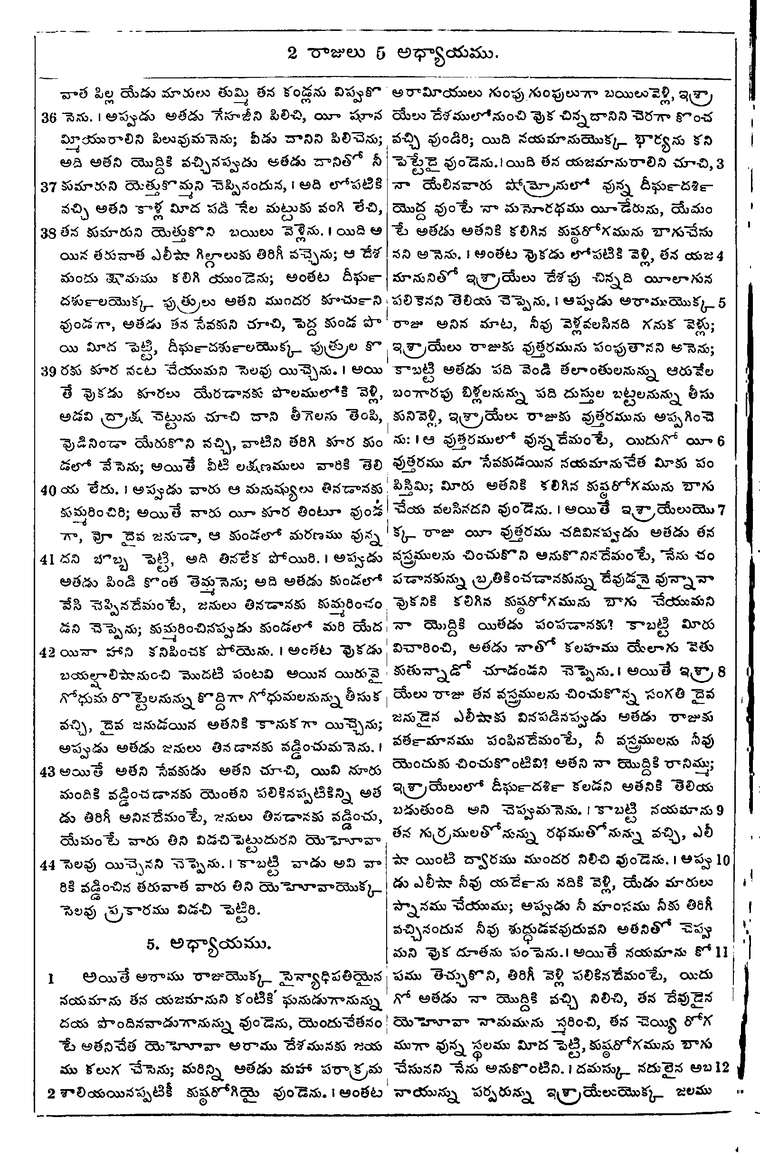 2 రాజులు 5 అధ్యాయము.
వాత పిల్ల యేడు మారులు తుమ్మి తన కండ్లను విప్పుకొ
36 నెను. । అప్పుడు అతడు గేహజీని పిలిచి, యీ షూన
మ్మియురాలిని పిలువుమనెను; వీడు దానిని పిలిచెను;
అది అతని యొద్దికి వచ్చినప్పుడు అతడు దానితో నీ
37 కుమారుని యెత్తుకొమ్మని చెప్పినందున, । అది లోపటికి
వచ్చి అతని కాళ్ల మీద పడి నేల మట్టుకు వంగి లేచి,
38 తన కుమారుని యెత్తుకొని బయిలు వెళ్లెను. । యిది అ
యిన తరువాత ఎలీషా గిల్గాలుకు తిరిగీ వచ్చెను; ఆ దేశ
మందు క్షామము కలిగి యుండెను; అంతట దీర్ఘద
దర్శులయొక్క పుత్రులు అతని ముందర కూర్చుని
వుండగా, అతడు తన సేవకుని చూచి, పెద్ద కుండ పొ
యి మీద పెట్టి, దీర్ఘదర్శులయొక్క పుత్రుల కొ
39 రకు కూర వంట చేయుమని సెలవు యిచ్చెను. । అయి
తే వొకడు కూరలు యేరడానకు పొలములోకి వెళ్లి,
అడవి ద్రాక్ష చెట్టును చూచి దాని తీగెలను తెంపి,
వొడినిండా యేరుకొని వచ్చి, వాటిని తరిగి కూర కుం
డలో వేసెను; అయితే వీటి లక్షణములు వారికి తెలి
40 య లేదు. । అప్పుడు వారు ఆ మనుష్యులు తినడానకు
కుమ్మరించిరి; అయితే వారు యీ కూర తింటూ వుండ
గా, వో దైవ జనుడా, ఆ కుండలో మరణము వున్న
41 దని బొబ్బ పెట్టి, అది తినలేక పోయిరి. । అప్పుడు
అతడు పిండి కొంత తెమ్మనెను; అది అతడు కుండలో
వేసి చెప్పినదేమంటే, జనులు తినడానకు కుమ్మరించం
డని చెప్పెను; కుమ్మరించినప్పుడు కుండలో మరి యేద
42 యినా హాని కనిపించక పోయెను. । అంతట వొకడు
బయల్షాలిషానుంచి మొదటి పంటవి అయిన యిరువై
గోధుమ రొట్టెలనున్ను కొద్దిగా గోధుమలనున్ను తీసుక
వచ్చి, దైవ జనుడయిన అతనికి కానుకగా యిచ్చెను;
అప్పుడు అతడు జనులు తినడానకు వడ్డించుమనెను. ।
43 అయితే అతని సేవకుడు అతని చూచి, యివి నూరు
మందికి వడ్డించడానకు యెంతని పలికినప్పటికిన్ని అత
డు తిరిగీ అనినదేమంటే, జనులు తినడానకు వడ్డించు,
యేమంటే వారు తిని విడచిపెట్టుదురని యెహోవా
44 సెలవు యిచ్చెనని చెప్పెను. । కాబట్టి వాడు అవి వా
రికి వడ్డించిన తరువాత వారు తిని యెహోవాయొక్క
సెలవు ప్రకారము విడచి పెట్టిరి.
5. అధ్యాయము.
1 అయితే అరాము రాజుయొక్క సైన్యాధిపతియైన
నయమాను తన యజమానుని కంటికి ఘనుడుగానున్ను
దయ పొందినవాడుగానున్ను వుండెను, యెందుచేతనం
టే అతనిచేత యెహోవా అరాము దేశమునకు జయ
ము కలుగ చేసెను; మరిన్ని అతడు మహా పరాక్రమ
2 శాలియయినప్పటికీ కుష్ఠరోగియై వుండెను. । అంతట
అరామీయులు గుంపు గుంపులుగా బయిలువెళ్లి, ఇశ్రా
యేలు దేశములోనుంచి వొక చిన్నదానిని చెరగా కొంచ
వచ్చి వుండిరి; యిది నయమానుయొక్క భార్యను కని
పెట్టేదై వుండెను. । యిది తన యజమానురాలిని చూచి, 3
నా యేలినవారు షోమ్రోనులో వున్న దీర్ఘదర్శి
యొద్ద వుంటే నా మనోరథము యీడేరును, యేమం
టే అతడు అతనికి కలిగిన కుష్ఠరోగమును బాగుచేను
నని అనెను. । అంతట వొకడు లోపటికి వెళ్లి, తన యజ 4
మానునితో ఇశ్రాయేలు దేశపు చిన్నది యీలాగున
పలికెనని తెలియ చెప్పెను. । అప్పుడు అరాముయొక్క 5
రాజు అనిన మాట, నీవు వెళ్లవలసినది గనుక వెళ్లు;
ఇశ్రాయేలు రాజుకు వుత్తరమును పంపుతానని అనెను;
కాబట్టి అతడు పది వెండి తలాంతులనున్ను ఆరువేల
బంగారపు బిళ్లలనున్ను పది దుస్తుల బట్టలనున్ను తీసు
కునివెళ్లి, ఇశ్రాయేలు రాజుకు వుత్తరమును అప్పగించె
ను. । ఆ వుత్తరములో వున్నదేమంటే, యిదుగో యీ 6
వుత్తరము మా సేవకుడయిన నయమానుచేత మీకు పం
పిస్తిమి; మీరు అతనికి కలిగిన కుష్ఠరోగమును బాగు
చేయ వలసినదని వుండెను. । అయితే ఇశ్రాయేలుయొ 7
క్క రాజు యీ వుత్తరము చదివినప్పుడు అతడు తన
వస్త్రములను చించుకొని అనుకొనినదేమంటే, నేను చం
పడానకున్ను బ్రతికించడానకున్ను దేవుడనై వున్నానా
వొకనికి కలిగిన కుష్ఠరోగమును బాగు చేయుమని
నా యొద్దికి యితడు పంపడానకు? కాబట్టి మీరు
విచారించి, అతడు నాతో కలహము యేలాగు వెతు
కుతున్నాడో చూడండని చెప్పెను. । అయితే ఇశ్రా 8
యేలు రాజు తన వస్త్రములను చించుకొన్న సంగతి దైవ
జనుడైన ఎలీషాకు వినపడినప్పుడు అతడు రాజుకు
వర్తమానము పంపినదేమంటే, నీ వస్త్రములను నీవు
యెందుకు చించుకొంటివి? అతని నా యొద్దికి రానిమ్ము;
ఇశ్రాయేలులో దీర్ఘదర్శి కలడని అతనికి తెలియ
బడుతుంది అని చెప్పుమనెను. । కాబట్టి నయమాను 9
తన గుర్రములతోనున్ను రథముతోనున్ను వచ్చి, ఎలీ
షా యింటి ద్వారము ముందర నిలిచి వుండెను. । అప్పు 10
డు ఎలీషా నీవు యర్దేను నదికి వెళ్లి, యేడు మారులు
స్నానము చేయుము; అప్పుడు నీ మాంసము నీకు తిరిగీ
వచ్చినందున నీవు శుద్ధుడవవుదువని అతనితో చెప్పు
మని వొక దూతను పంపెను. । అయితే నయమాను కో 11
పము తెచ్చుకొని, తిరిగీ వెళ్లి పలికినదేమంటే, యిదు
గో అతడు నా యొద్దికి వచ్చి నిలిచి, తన దేవుడైన
యెహోవా నామమును స్మరించి, తన చెయ్యి రోగ
ముగా వున్న స్థలము మీద పెట్టి, కుష్ఠరోగమును బాగు
చేసునని నేను అనుకొంటిని. । దమస్కు నదులైన అబ 12
నాయున్ను పర్పరున్ను ఇశ్రాయేలుయొక్క జలము